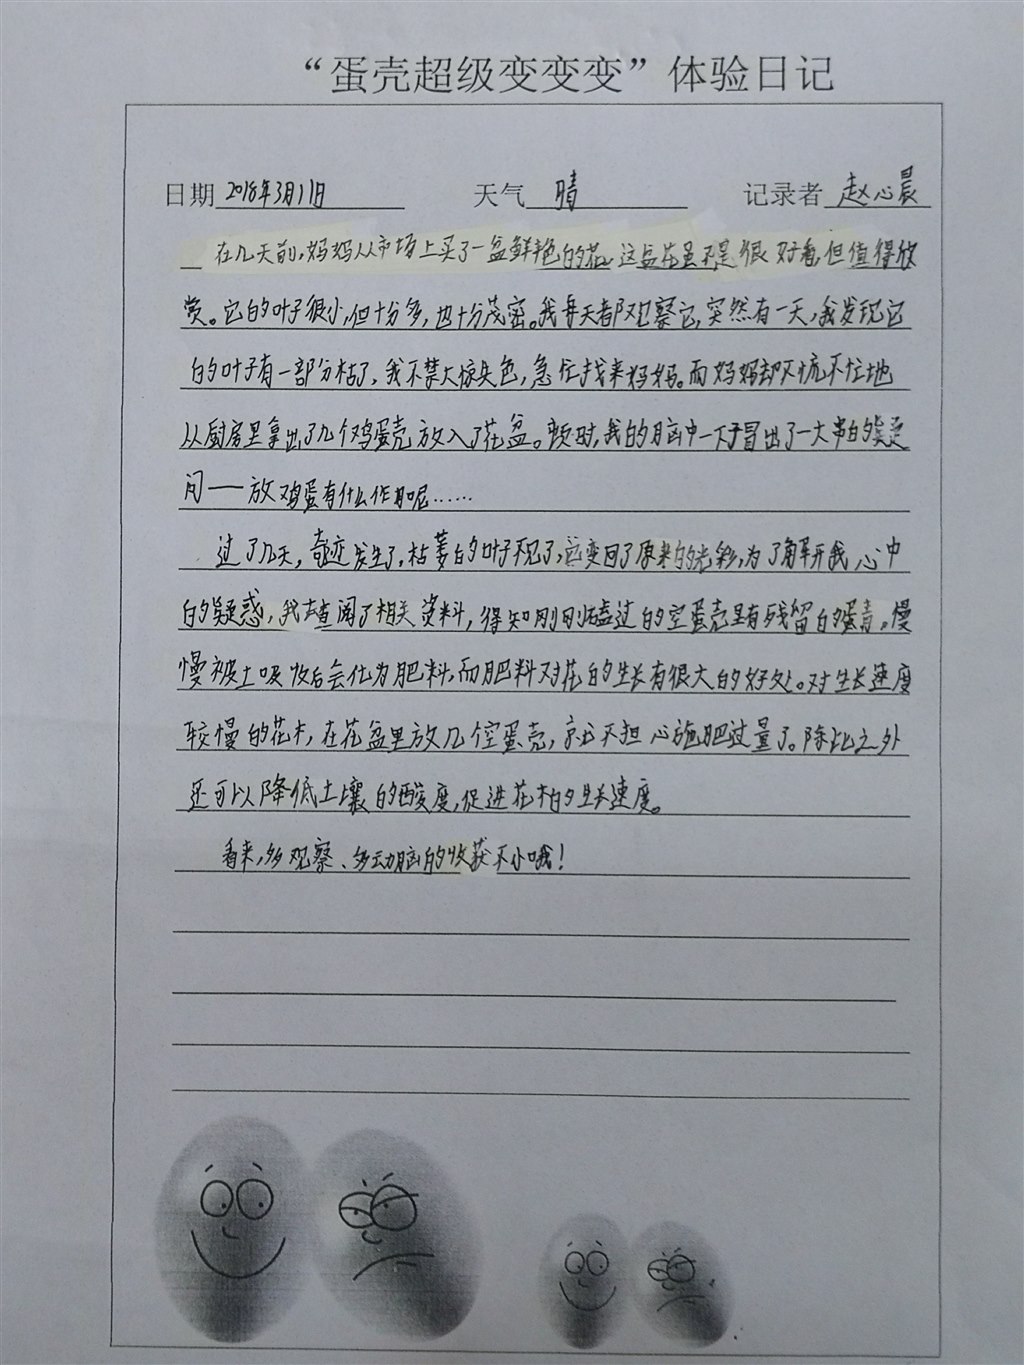 “蛋壳超级变变变”体验日记
日期 2018年3月11日 天气 晴 记录者 赵心晨
在几天前,妈妈从市场上买了一盆鲜艳色的花,这盆花虽不是很好看,但值得欣
赏。它的叶子很小,但十分多,也十分茂密。我每天都观察它,突然有一天,我发现它
的叶子有一部分枯了,我不禁大惊失色,急忙找来妈妈。而妈妈却不慌不忙地
从厨房里拿出了几个鸡蛋壳放入了花盆。顿时,我的脑中一下子冒出了一大串的疑
问——放鸡蛋有什么作用呢……
过了几天,奇迹发生了,枯萎的叶子不见了,它变回了原来的光彩,为了解开我心中
的疑惑,我去查阅了相关资料,得知刚刚磕过的空蛋壳里有残留的蛋青。慢
慢被土吸收后会化为肥料,而肥料对花的生长有很大的好处。对生长速度
较慢的花木,在花盆里放几个空蛋壳,就不担心施肥过量了。除此之外
还可以降低土壤的酸度,促进花木的生长速度。
看来,多观察、多动脑的收获不小哦!